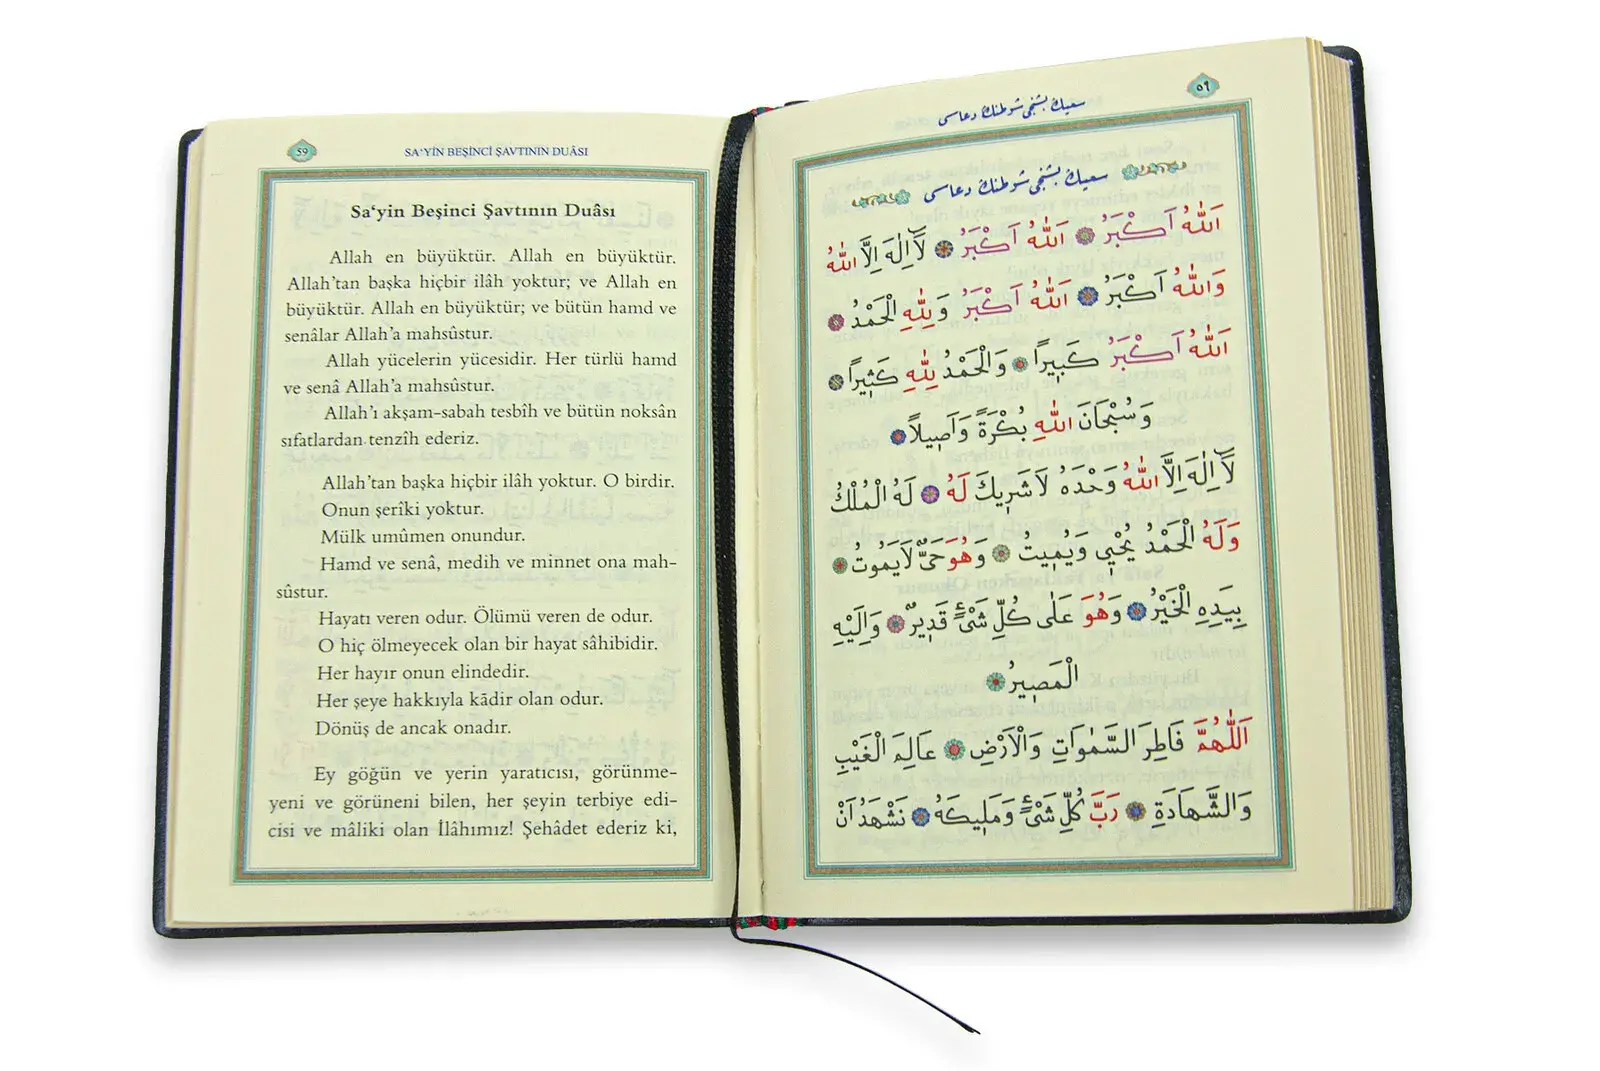 59
SA‘YİN BEŞİNCİ ŞAVTININ DUÂSI
Sa‘yin Beşinci Şavtının Duâsı
Allah en büyüktür. Allah en büyüktür.
Allah’tan başka hiçbir ilâh yoktur; ve Allah en
büyüktür. Allah en büyüktür; ve bütün hamd ve
senâlar Allah’a mahsûstur.
Allah yücelerin yücesidir. Her türlü hamd
ve senâ Allah’a mahsûstur.
Allah’ı akşam-sabah tesbîh ve bütün noksân
sıfatlardan tenzîh ederiz.
Allah’tan başka hiçbir ilâh yoktur. O birdir.
Onun şerîki yoktur.
Mülk umûmen onundur.
Hamd ve senâ, medih ve minnet ona mah-
sûstur.
Hayatı veren odur. Ölümü veren de odur.
O hiç ölmeyecek olan bir hayat sâhibidir.
Her hayır onun elindedir.
Her şeye hakkıyla kādir olan odur.
Dönüş de ancak onadır.
Ey göğün ve yerin yaratıcısı, görünme-
yeni ve görüneni bilen, her şeyin terbiye edi-
cisi ve mâliki olan İlâhımız! Şehâdet ederiz ki,
٥٩
سعيڭ بشنجی شوطنڭ دعاسی
سعيڭ بشنجی شوطنڭ دعاسی
اَللّٰهُ اَكْبَرُ اَللّٰهُ اَكْبَرُ لَٓا اِلٰهَ اِلَّا اللّٰهُ
وَاللّٰهُ اَكْبَرُ اَللّٰهُ اَكْبَرُ وَلِلّٰهِ الْحَمْدُ
اَللّٰهُ اَكْبَرُ كَبِيرًا وَالْحَمْدُ لِلّٰهِ كَثِيرًا
وَسُبْحَانَ اللّٰهِ بُكْرَةً وَاَصِيلًا
لَٓا اِلٰهَ اِلَّا اللّٰهُ وَحْدَهُ لَا شَرِيكَ لَهُ لَهُ الْمُلْكُ
وَلَهُ الْحَمْدُ يُحْيِي وَيُمِيتُ وَهُوَ حَيٌّ لَا يَمُوتُ
بِيَدِهِ الْخَيْرُ وَهُوَ عَلٰى كُلِّ شَيْءٍ قَدِيرٌ وَاِلَيْهِ
الْمَصِيرُ
اَللّٰهُمَّ فَاطِرَ السَّمٰوَاتِ وَالْاَرْضِ عَالِمَ الْغَيْبِ
وَالشَّهَادَةِ رَبَّ كُلِّ شَيْءٍ وَمَلِيكَهُ نَشْهَدُ اَنْ